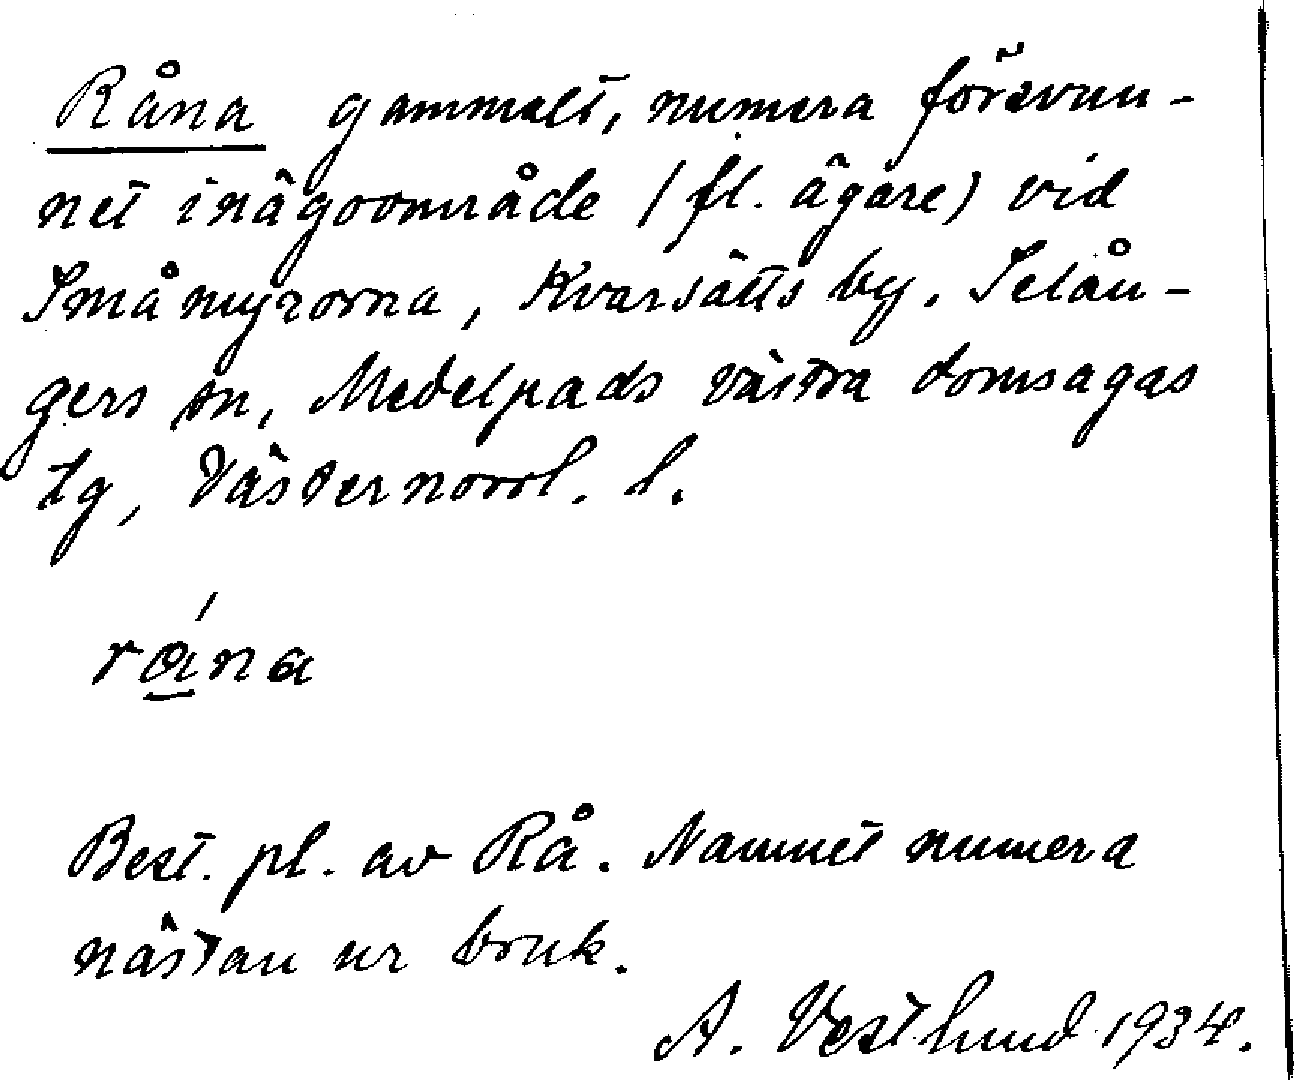 Råna gammalt, numera försvun-
net inägoområde (fl. ägare) vid
Småmyrorna, Kvarsätts by, Selån-
gers sn, Medelpads västra domsagas
tg, Västernorrl. l.
råna
Best. pl. av Rå. Namnet numera
nästan ur bruk.
A. Vestlund 1934.